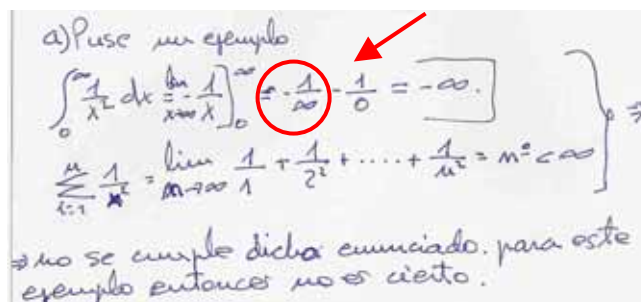 a) Puse un ejemplo
∫₀^∞ 1/x² dx = lim x→∞ -1/x ]₀^∞ = -1/∞ - 1/0 = -∞.
∑_{i=1}^n 1/x² = lim n→∞ 1/1 + 1/2² + ..... + 1/n² = nº < ∞ } ⇒
⇒ no se cumple dicha enunciado. para este
ejemplo entonces no es cierto.